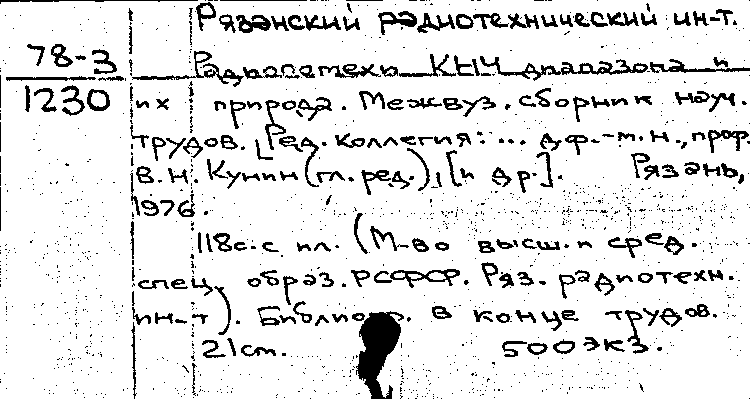 Рязанский радиотехнический ин-т.
78-3
1230
Радиопомехи КНЧ диапазона и
их природа. Межвуз. сборник науч.
трудов. [Ред. коллегия: ... д.ф.-м.н., проф.
В. Н. Кунин (гл. ред.), [и др.]. Рязань,
1976.
118с. с ил. (М-во высш. и сред.
спец. образ. РСФСР. Ряз. радиотехн.
ин-т). Библиогр. в конце трудов.
21см. 500экз.